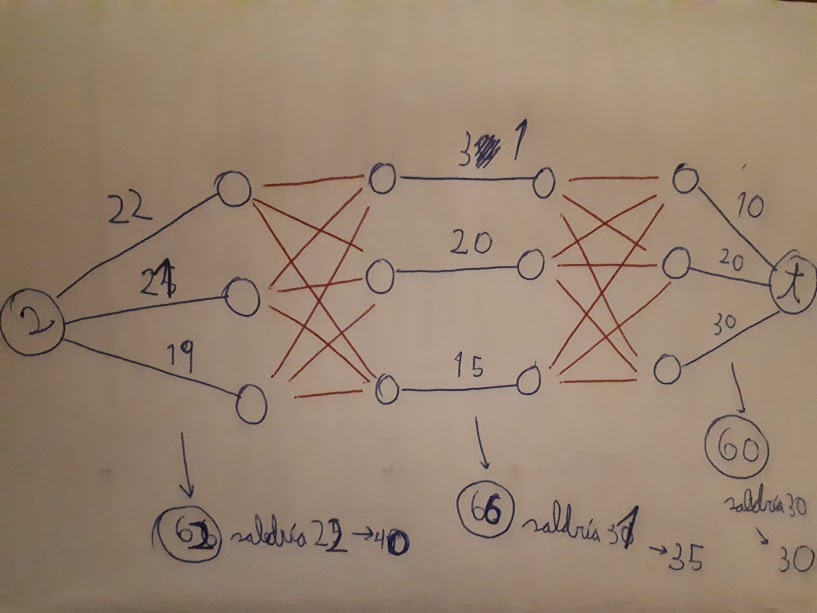 22
21
19
2
31
20
15
10
20
30
t
62 saldría 22 → 40
66 saldría 31
→ 35
60
saldría 30
→ 30